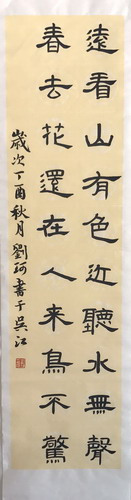 遠看山有色近聽水無聲
春去花還在人来鳥不驚
歲次丁酉秋月劉珂書于吳江